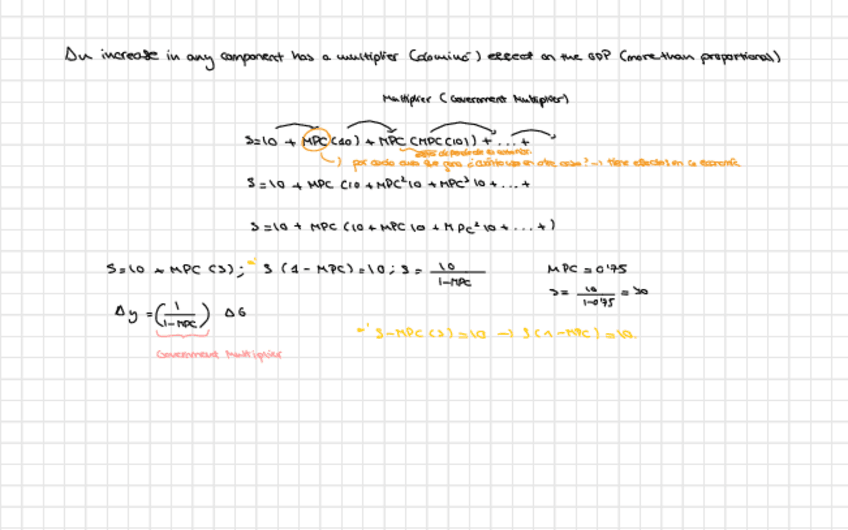 An increase in any component has a multiplier (domino) effect on the GDP (more than proportional)
Multiplier (Government Multiplier)
S=10 + MPC(10) + MPC (MPC(10)) + ... +
por cada euro que gana ¿cuánto usa en otra cosa? → tiene efectos en la economía
S=10 + MPC (10 + MPC²10 + MPC³10 + ... +
S=10 + MPC (10 + MPC 10 + MPC² 10 + ... +)
S=10 + MPC (S); S (1 - MPC) = 10; S = 10/1-MPC
MPC = 0'75
S = 10/1-0'75 = 30
Δy = (1/1-MPC) ΔG
S - MPC (S) = 10 → S (1 - MPC) = 10.
Government Multiplier